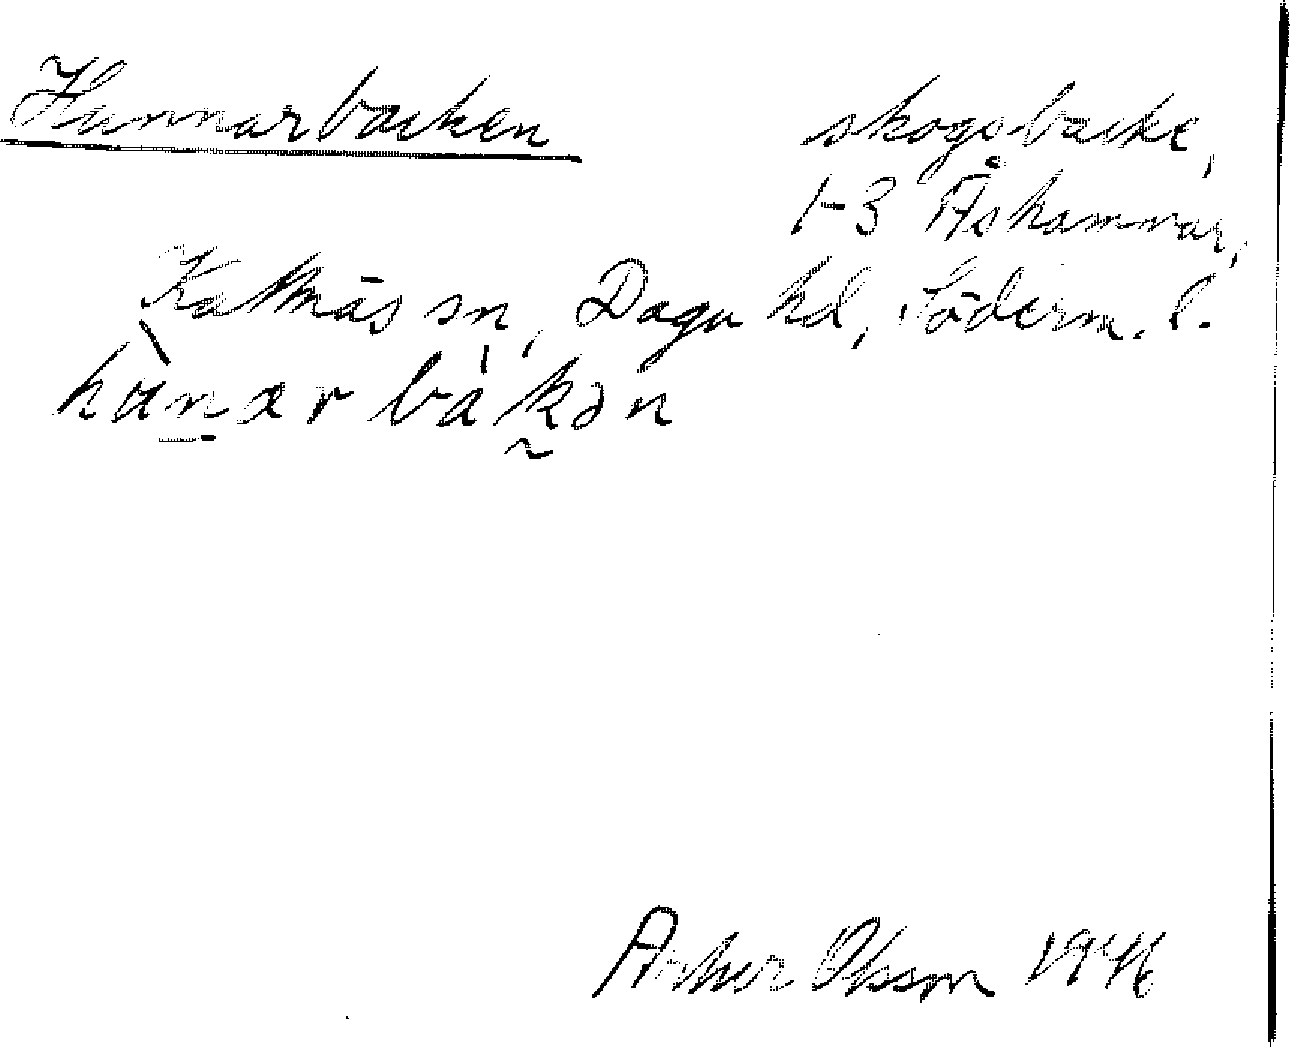 Hunnarbacken skogsbacke,
1-3 Åskammar,
Kattnäs sn, Daga hd, Söderm. l.
hùnar bàkən
Arthur Olsson 1946